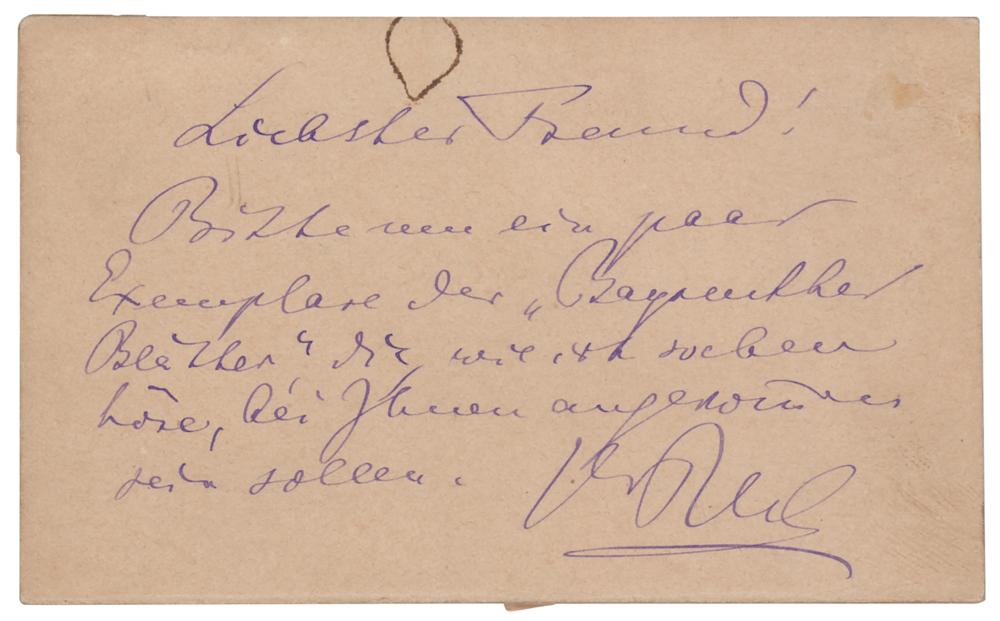 Liebster Freund!
Bitte um ein paar
Exemplare der „Bayreuther
Blätter“ die, wie ich soeben
höre, bei Ihnen angekom̅en
sein sollen.